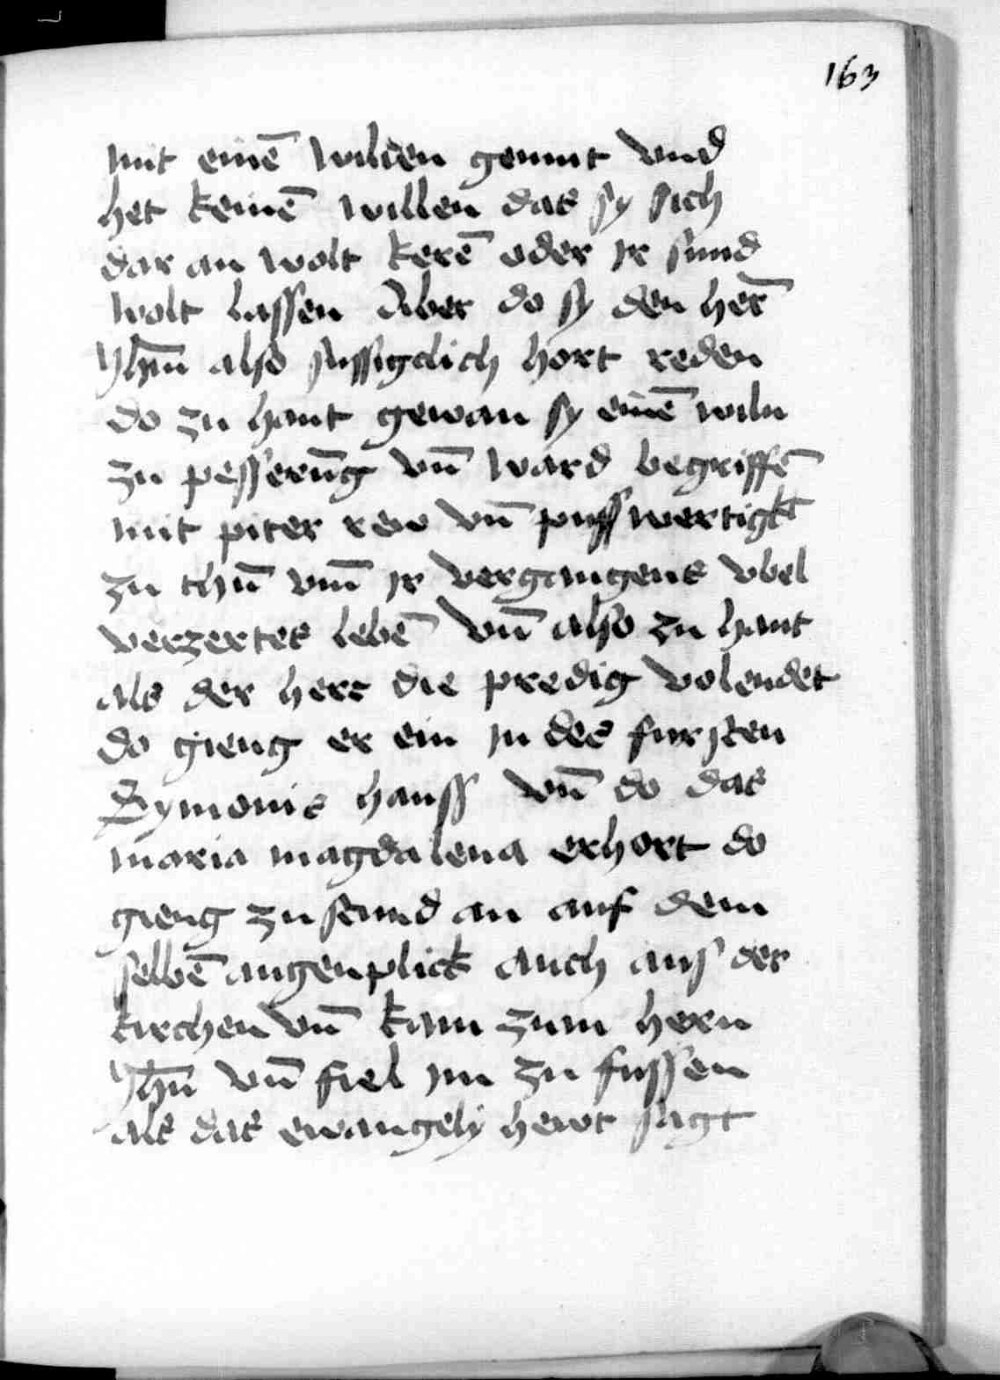 163
mit eine͞ wilden gemut vnd
het keine͞ willen das sy sich
dar an wolt kere͞ oder Jr sund
wolt lassen Aber do sy den her͞
Yhm͞ also sussigclich hort reden
do zu hant gewan sy eine͞ wiln
zu pesseru͞g vn͞ ward begriffe͞
mit piter rew vn͞ puss wertigkt
zu thu͞ vm͞ Jr vergangens vbel
verzertes lebe͞ vn͞ also zu hant
als der herr die predig volendet
do gieng er ein Jn des fursten
Symonis hauss vn͞ do das
maria magdalena erhort do
gieng zu stund an auf dem
selbe͞ augenplick auch aus der
kirchen vn͞ kam zum hern
Yhu͞ vn͞ fiel Jm zu fussen
als das ewangely hewt sagt